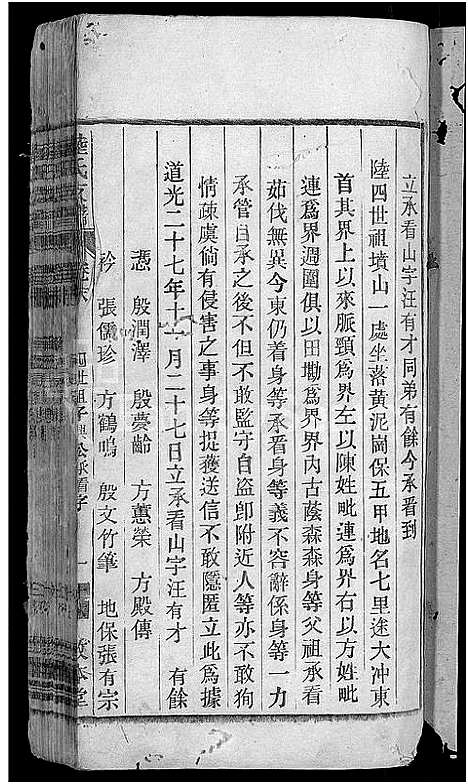 立承看山字汪有才同弟有餘今承看到
陸四世祖墳山一處坐落黄泥崗保五甲地名七里途大冲東
首其界上以來脈頸爲界左以陳姓毗連爲界右以方姓毗
連爲界週圍俱以田墈爲界界内古蔭森森身等父祖承看
茹伐無異今東仍着身等承看身等義不容辭係身等一力
承管自承之後不但不敢監守自盗即附近人等亦不敢狥
情疎虞倘有侵害之事身等捉獲送信不敢隱匿立此爲據
道光二十七年十一月二十七日立承看山字汪有才 有餘
憑 殷潤澤 殷夢齡 方蕙榮 方殿傳
衿 張儒珍 方鶴鳴 殷文竹筆 地保張有宗
陸氏宗譜 四世祖 承看字 一 敦本堂